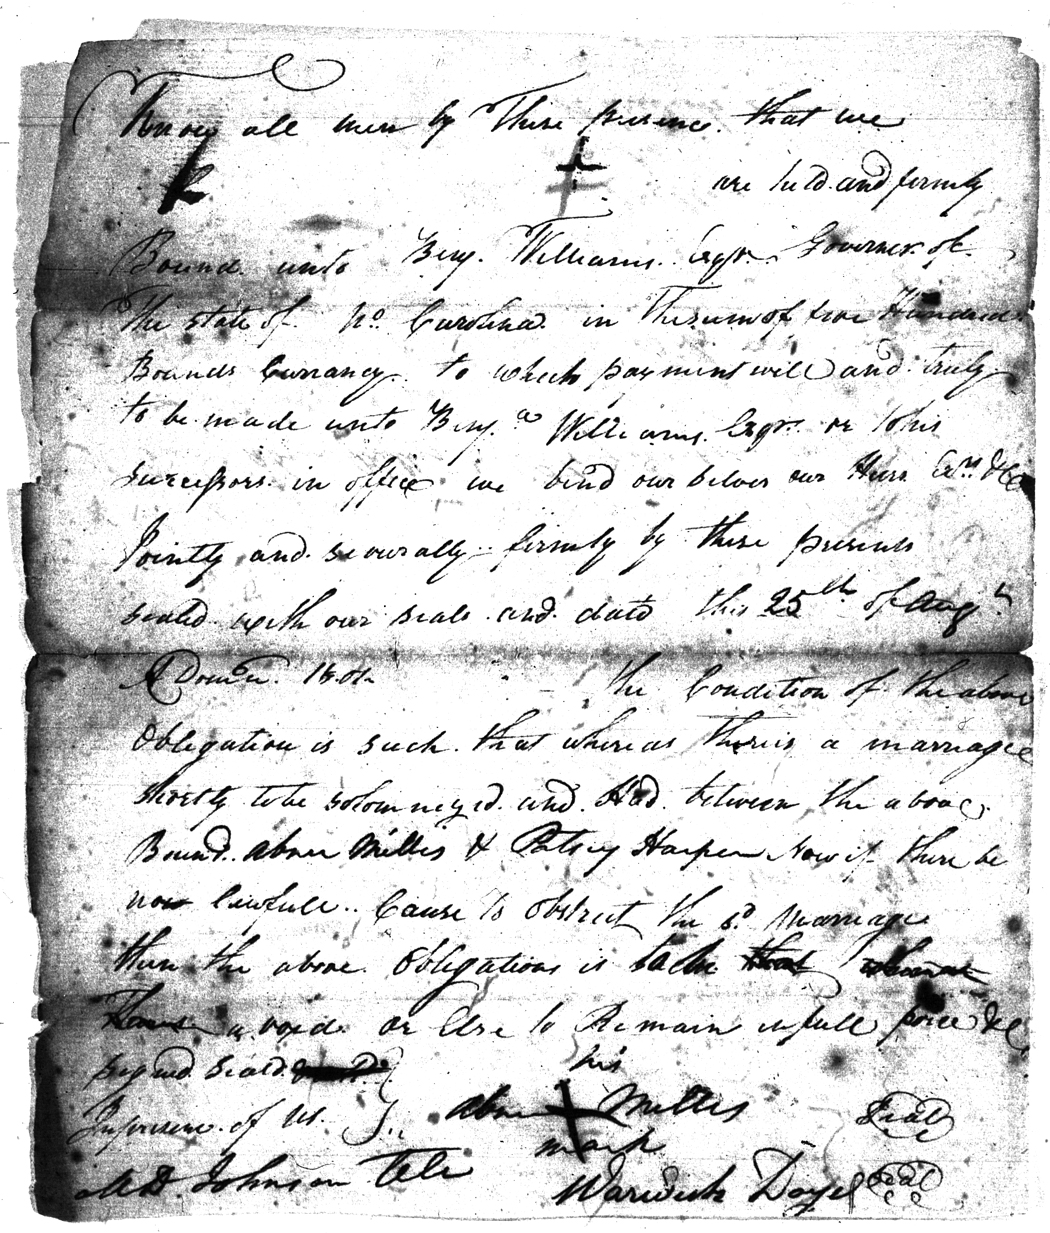 Know all men by These presence that we
are held and firmly
Bound unto Benj. Williams Esqr. Governer of
The state of No. Carolina in The sum of five Hundred
Pounds Currancy to which payment well and truly
to be made unto Benj.a Williams Esqr. or to his
successors in office we bind our selves our Heirs Exrs &c
Jointly and severally firmly by these presents
sealed with our seals and dated this 25th of Augt.
A Domini 1801 The Condition of the above
Obligation is such that whereas there is a marriage
shortly to be solomnezed and Had between the above
Bound Abner Millis & Patsey Harper Now if there be
now lawfull Cause to obstruct the sd. marriage
then the above obligations is to be
a void or Else to Remain in full force &c
Signed Seald his
In presence of us Abner X Millis Seal
mark
A. D. Johnson Warwick Doyel Seal